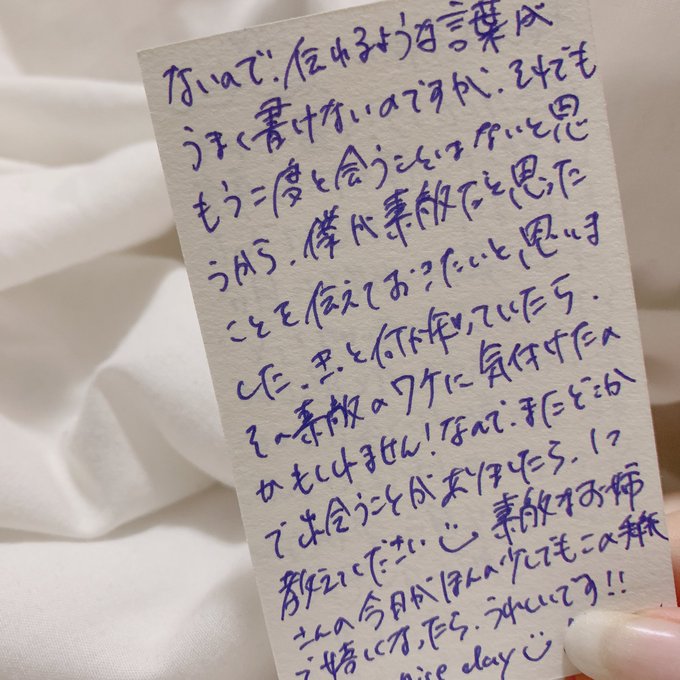 ないので、伝わるような言葉が
うまく書けないのですが、それでも
もう二度と会うことはないと思
うから、僕が素敵だと思った
ことを伝えておきたいと思いま
した。きっと何か作っていたら、
その素敵のワケに気付けたの
かもしれません！なので、またどこか
で出会うことがありましたら、
教えてください 素敵なお姉
さんの今日がほんの少しでもこの手紙
で嬉しくなったら、うれしいです!!
nice day